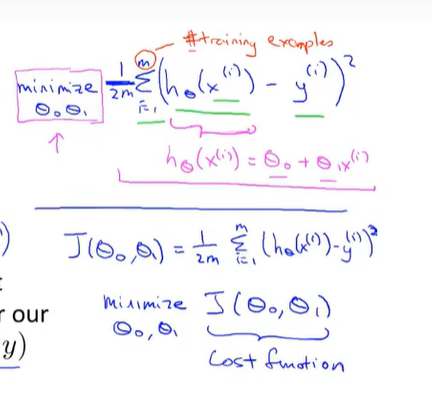 #training examples
minimize θ₀θ₁ 1/2m Σᵢ₌₁ᵐ (h_θ(x⁽ⁱ⁾) - y⁽ⁱ⁾)²
h_θ(x⁽ⁱ⁾) = θ₀ + θ₁x⁽ⁱ⁾
) J(θ₀,θ₁) = 1/2m Σᵢ₌₁ᵐ (h_θ(x⁽ⁱ⁾) - y⁽ⁱ⁾)²
r our minimize θ₀,θ₁ J(θ₀,θ₁)
y) Cost function